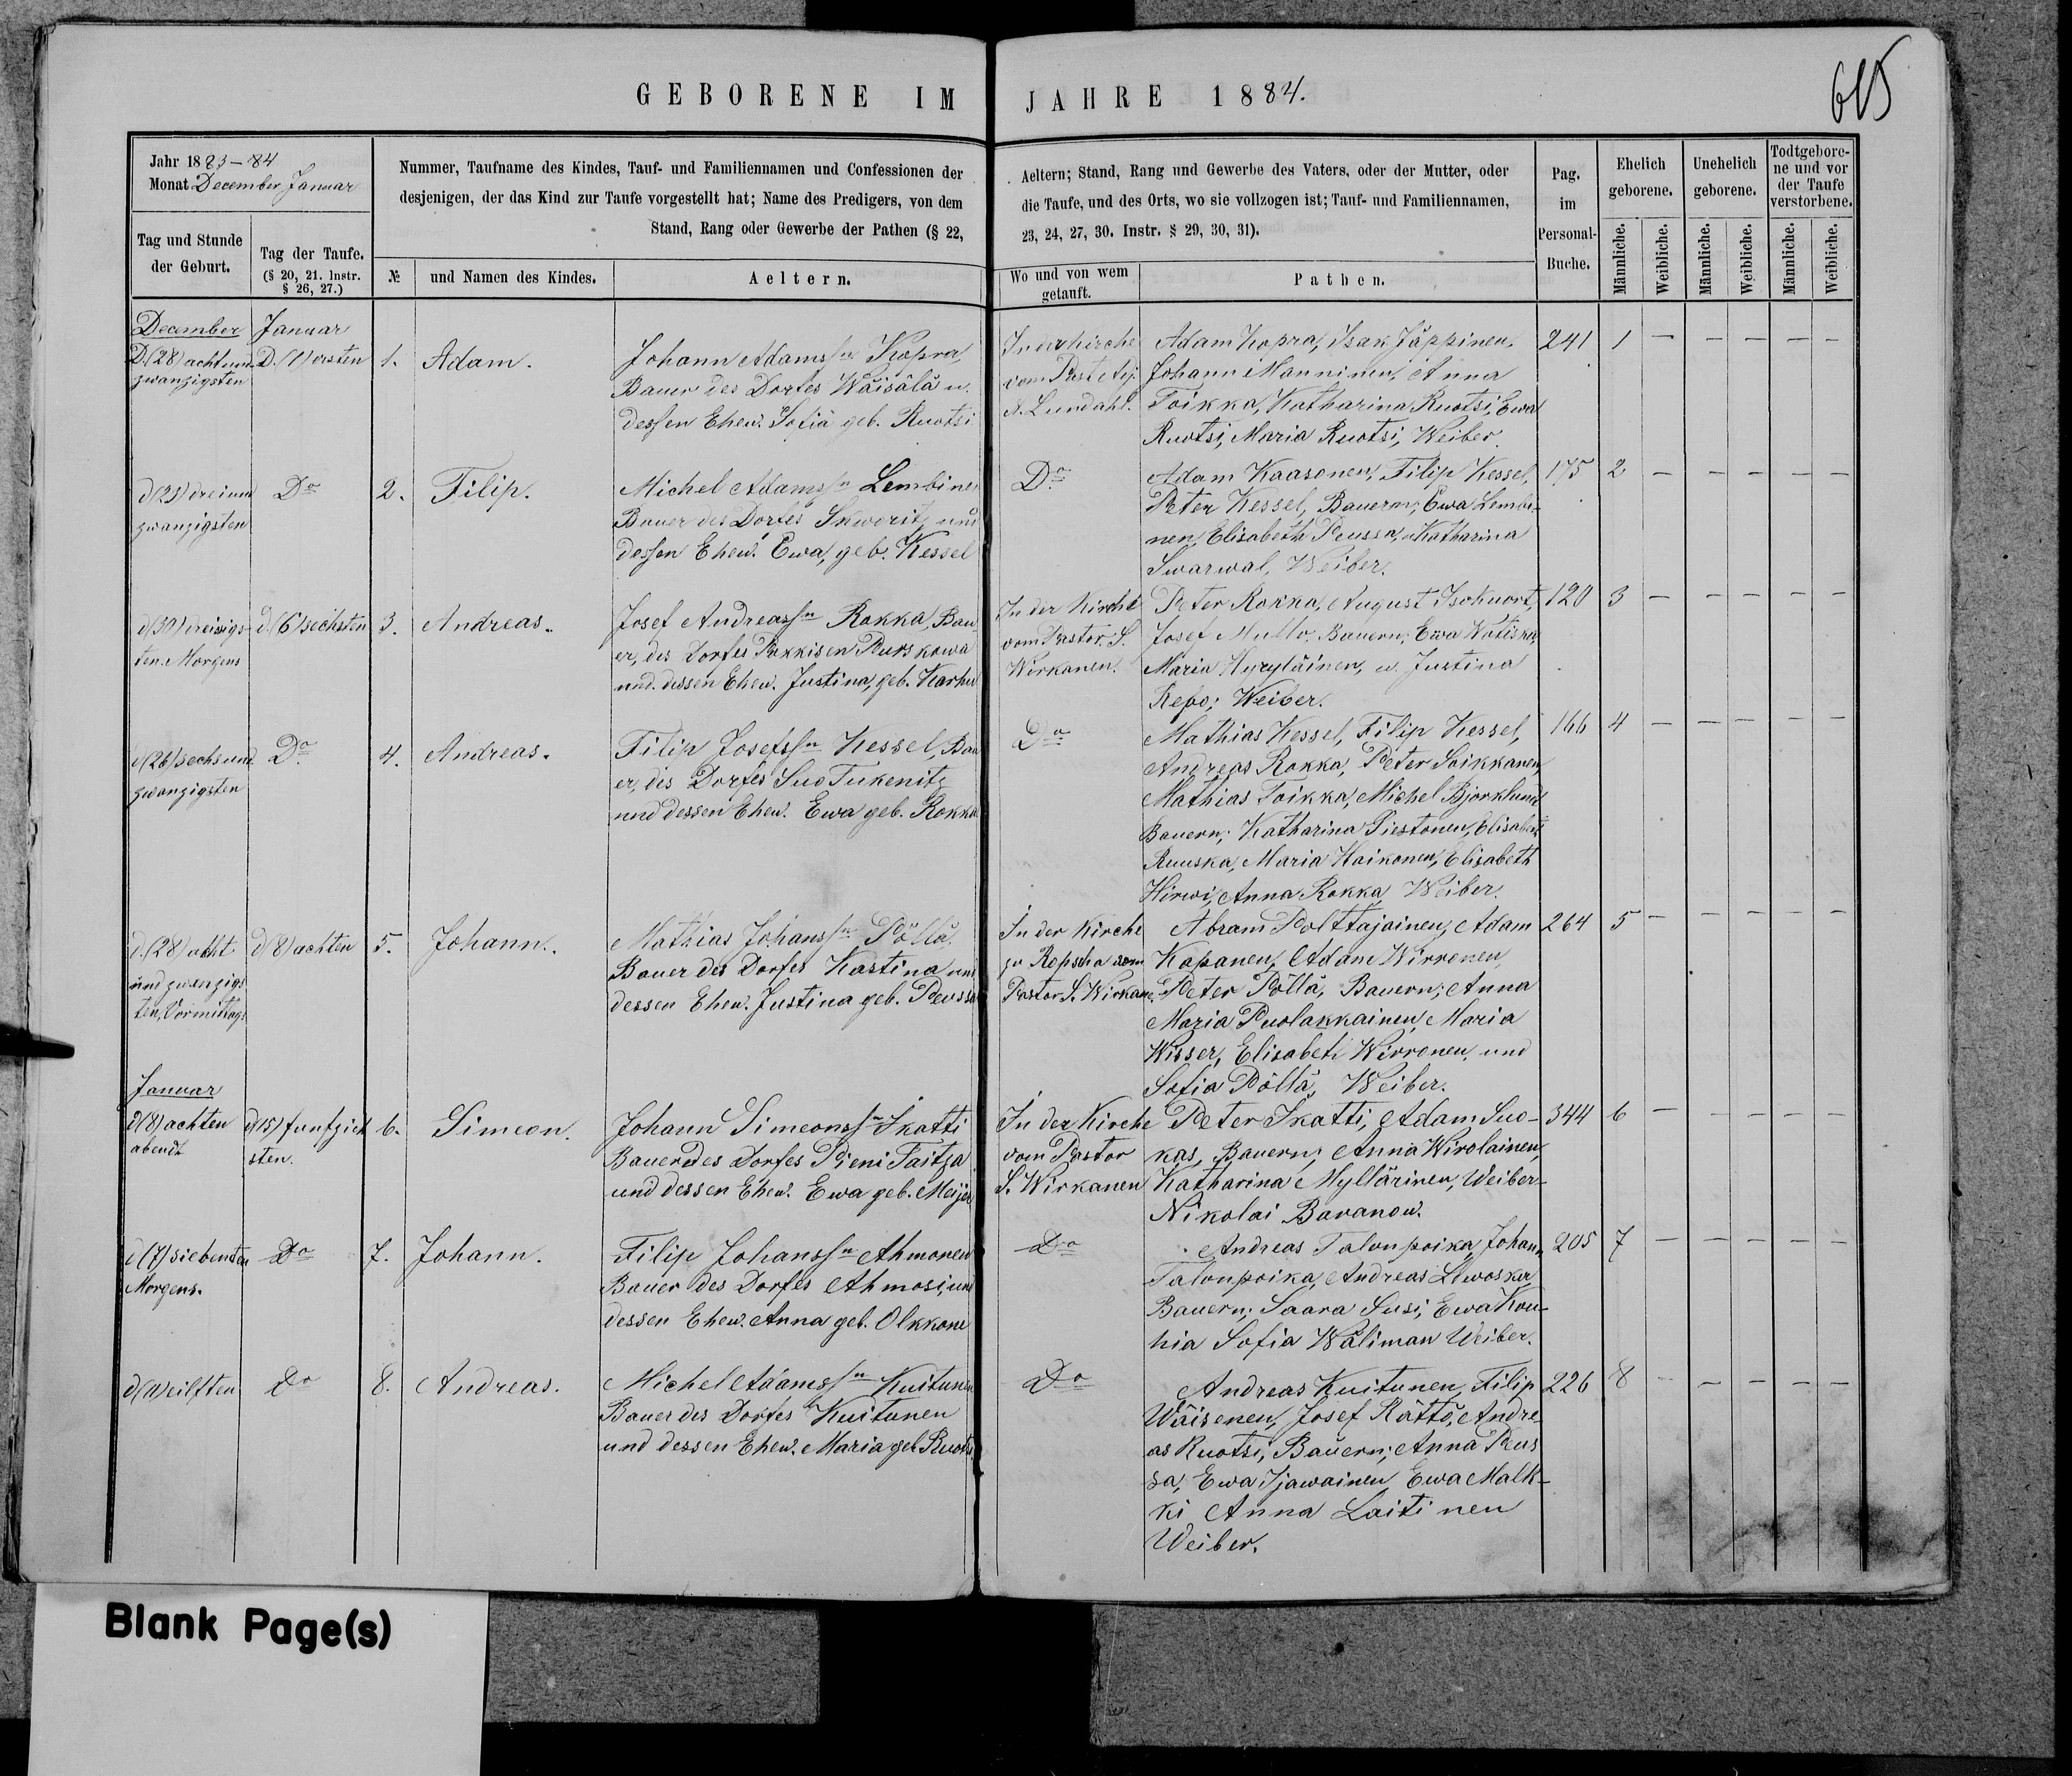 GEBORENE IM JAHRE 1884.
615
Jahr 1883-84
Monat December Januar
Nummer, Taufname des Kindes, Tauf- und Familiennamen und Confessionen der
desjenigen, der das Kind zur Taufe vorgestellt hat; Name des Predigers, von dem
Stand, Rang oder Gewerbe der Pathen (§ 22,
Aeltern; Stand, Rang und Gewerbe des Vaters, oder der Mutter, oder
die Taufe, und des Orts, wo sie vollzogen ist; Tauf- und Familiennamen,
23, 24, 27, 30. Instr. § 29, 30, 31).
Pag.
im
Personal-
Buche.
Ehelich
geborene.
Unehelich
geborene.
Todtgebore-
ne und vor
der Taufe
verstorbene.
Tag und Stunde
der Geburt.
Tag der Taufe.
(§ 20, 21. Instr.
§ 26, 27.)
№
und Namen des Kindes.
Aeltern.
Wo und von wem
getauft.
Pathen.
Männliche.
Weibliche.
Männliche.
Weibliche.
Männliche.
Weibliche.
December
D. (28) achtund
zwanzigsten
Januar
D. (1) ersten
1.
Adam.
Johann Adamssn Kopra,
Bauer des Dorfes Wäisälä u.
dessen Ehew. Sofia geb. Ruotsi
In der Kirche
vom Past. Adj.
A. Lundahl.
Adam Kopra, Isak Jäppinen,
Johann Manninen, Anna
Toikka, Katharina Ruotsi, Ewa
Ruotsi, Maria Ruotsi, Weiber.
241
1 — — — — —
d (23) dreiund
zwanzigsten
Do
2.
Filip.
Michel Adamssn Lembinen
Bauer des Dorfes Skworitz und
dessen Ehew. Ewa, geb. Kessel
Do
Adam Kaasonen, Filip Kessel,
Peter Kessel, Bauern; Ewa Lembi-
nen, Elisabeth Peussa, Katharina
Swarwal, Weiber.
175
2 — — — — —
d (30) dreisigs-
ten Morgens
d. (6) sechsten
3.
Andreas.
Josef Andreassn Rokka, Bau-
er, des Dorfes Pekkisen Purskowa
und dessen Ehew. Justina, geb. Karhu
In der Kirche
vom Pastor S.
Wirkanen.
Peter Rokka, August Ischuort,
Josef Mullo, Bauern; Ewa Wotiska,
Maria Hyryläinen, u. Justina
Repo; Weiber.
120
3 — — — — —
d (26) sechsund
zwanzigsten
Do
4.
Andreas.
Filip Josefssn Kessel, Bau
er, des Dorfes Suo Tukenitz
und dessen Ehew. Ewa geb. Rokka
Do
Mathias Kessel, Filip Kessel,
Andreas Rokka, Peter Soikkanen,
Mathias Toikka, Michel Bjorklund
Bauern; Katharina Piestonen, Elisabeth
Ruuska, Maria Haikonen, Elisabeth
Hirwi, Anna Rokka Weiber.
166
4 — — — — —
d. (28) acht
und zwanzigs
ten, Vormittags
d (8) achten
5.
Johann.
Mathias Johanssn Pöllä
Bauer des Dorfes Kastina und
dessen Ehew. Justina geb. Peussa
In der Kirche
zu Ropscha vom
Pastor S. Wirkanen.
Abram Polttajainen, Adam
Kapanen, Adam Wirronen,
Peter Pöllä, Bauern; Anna
Maria Puolakkainen, Maria
Wisser, Elisabeth Wirronen, und
Sofia Pöllä, Weiber.
264
5 — — — — —
Januar
d (8) achten
abends
d (15) funfzich
sten.
6.
Simeon.
Johann Simeonssn Skatti
Bauer des Dorfes Pieni Taitza
und dessen Ehew. Ewa geb. Meijer
In der Kirche
vom Pastor
S. Wirkanen
Peter Skatti, Adam Suo-
kas, Bauern; Anna Wirolainen,
Katharina Myllärinen, Weiber-
Nikolai Baranow.
344
6 — — — — —
d (7) siebenten
Morgens.
Do
7.
Johann.
Filip Johanssn Ahmonen
Bauer des Dorfes Ahmosi, und
dessen Ehew. Anna geb. Olkkone
Do
Andreas Talonpoika, Johann
Talonpoika, Andreas
Bauern; Saara Susi, Ewa Kou-
hia Sofia Wäliman Weiber.
205
7 — — — — —
d (11) eilften
Do
8.
Andreas.
Michel Adamssn Kuitunen
Bauer des Dorfes Kuitunen
und dessen Ehew. Maria geb. Ruotsi
Do
Andreas Kuitunen, Filip
Wäisenen, Josef Rättö, Andre-
as Ruotsi, Bauern; Anna Peus
sa, Ewa Ijawainen, Ewa Malk-
ki Anna Laitinen
Weiber.
226
8 — — — — —
Blank Page(s)